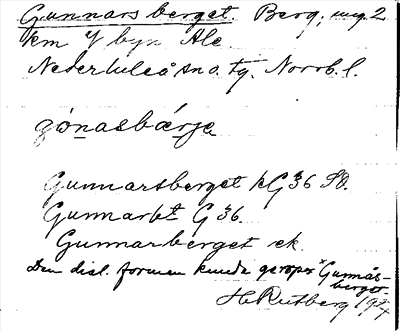 Gunnarsberget. Berg, ung. 2
km V byn Ale
Nederluleå sn o. tg. Norrb. l.
gónasbǽrje
Gunnarsberget kG 36 SO.
Gunnarbt G 36.
Gunnarberget ek.
Den dial. formen kunde geropa *Gunnås-
berget.
H. Rutberg 19